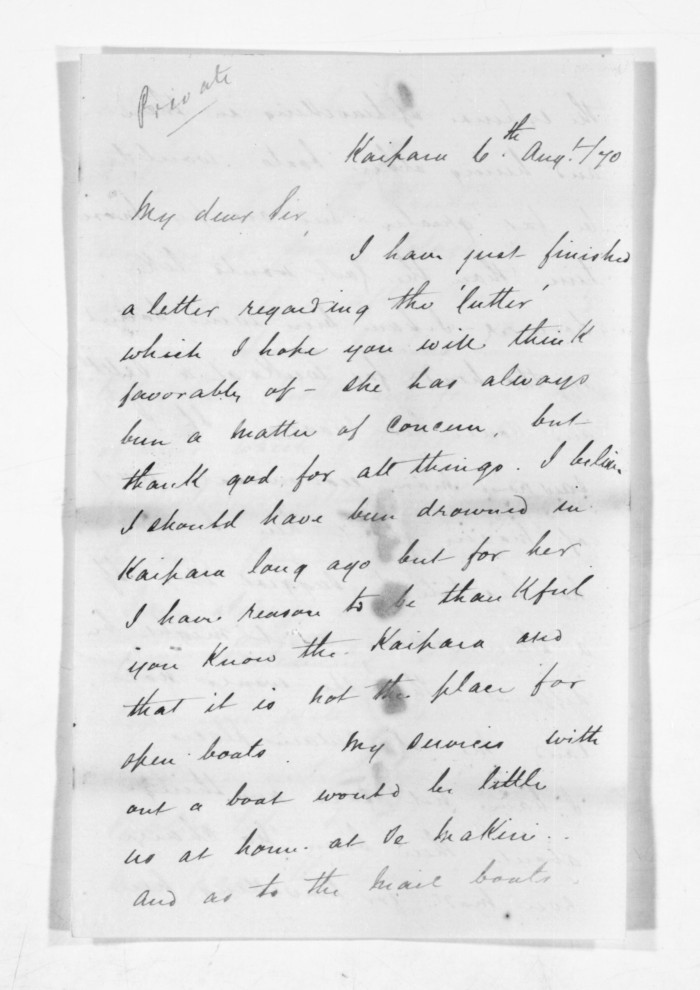 Private
Kaipara 6th Augt/70
My dear Sir,
I have just finished
a letter regarding the 'Cutter'
which I hope you will think
favorably of - she has always
been a matter of concern, but
thank god for all things. I believe
I should have been drowned in
Kaipara long ago but for her
I have reason to be thankful
you know the Kaipara and
that it is not the place for
open boats. My services with
out a boat would be little
us at home at Te Makiri.
and as to the mail boats